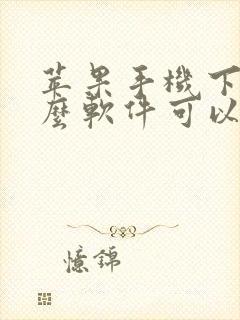 苹果手機下
麼軟件可以
憶錦